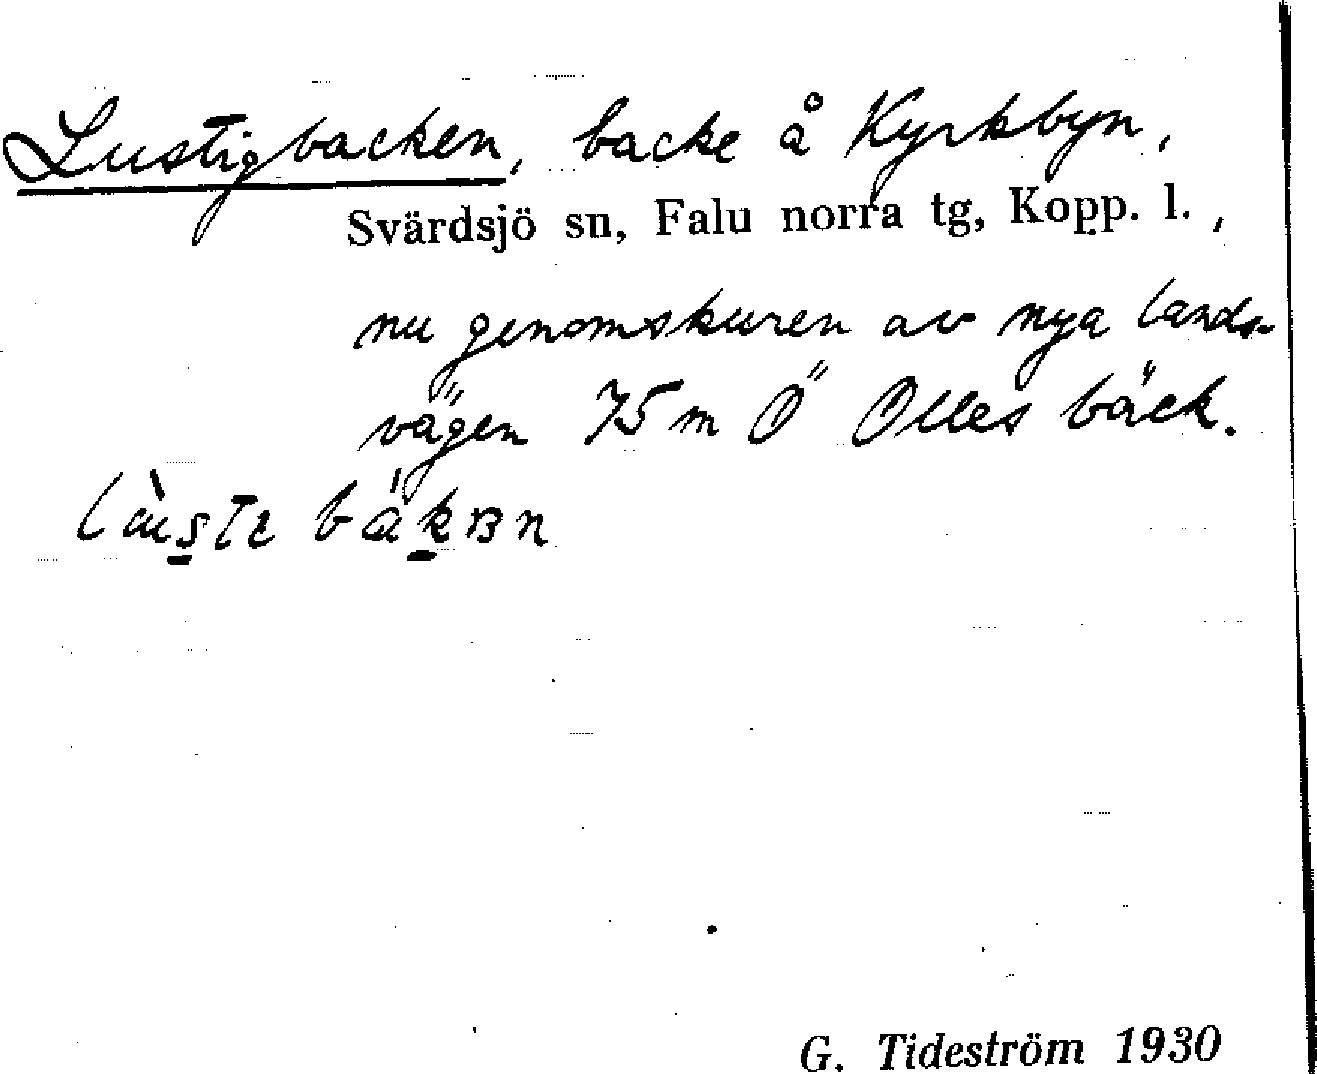 Lustigbacken, backe å Kyrkbyn,
Svärdsjö sn, Falu norra tg, Kopp. l.,
nu genomskuren av nya lands-
vägen 75 m Ö Olles bäck.
G. Tideström 1930